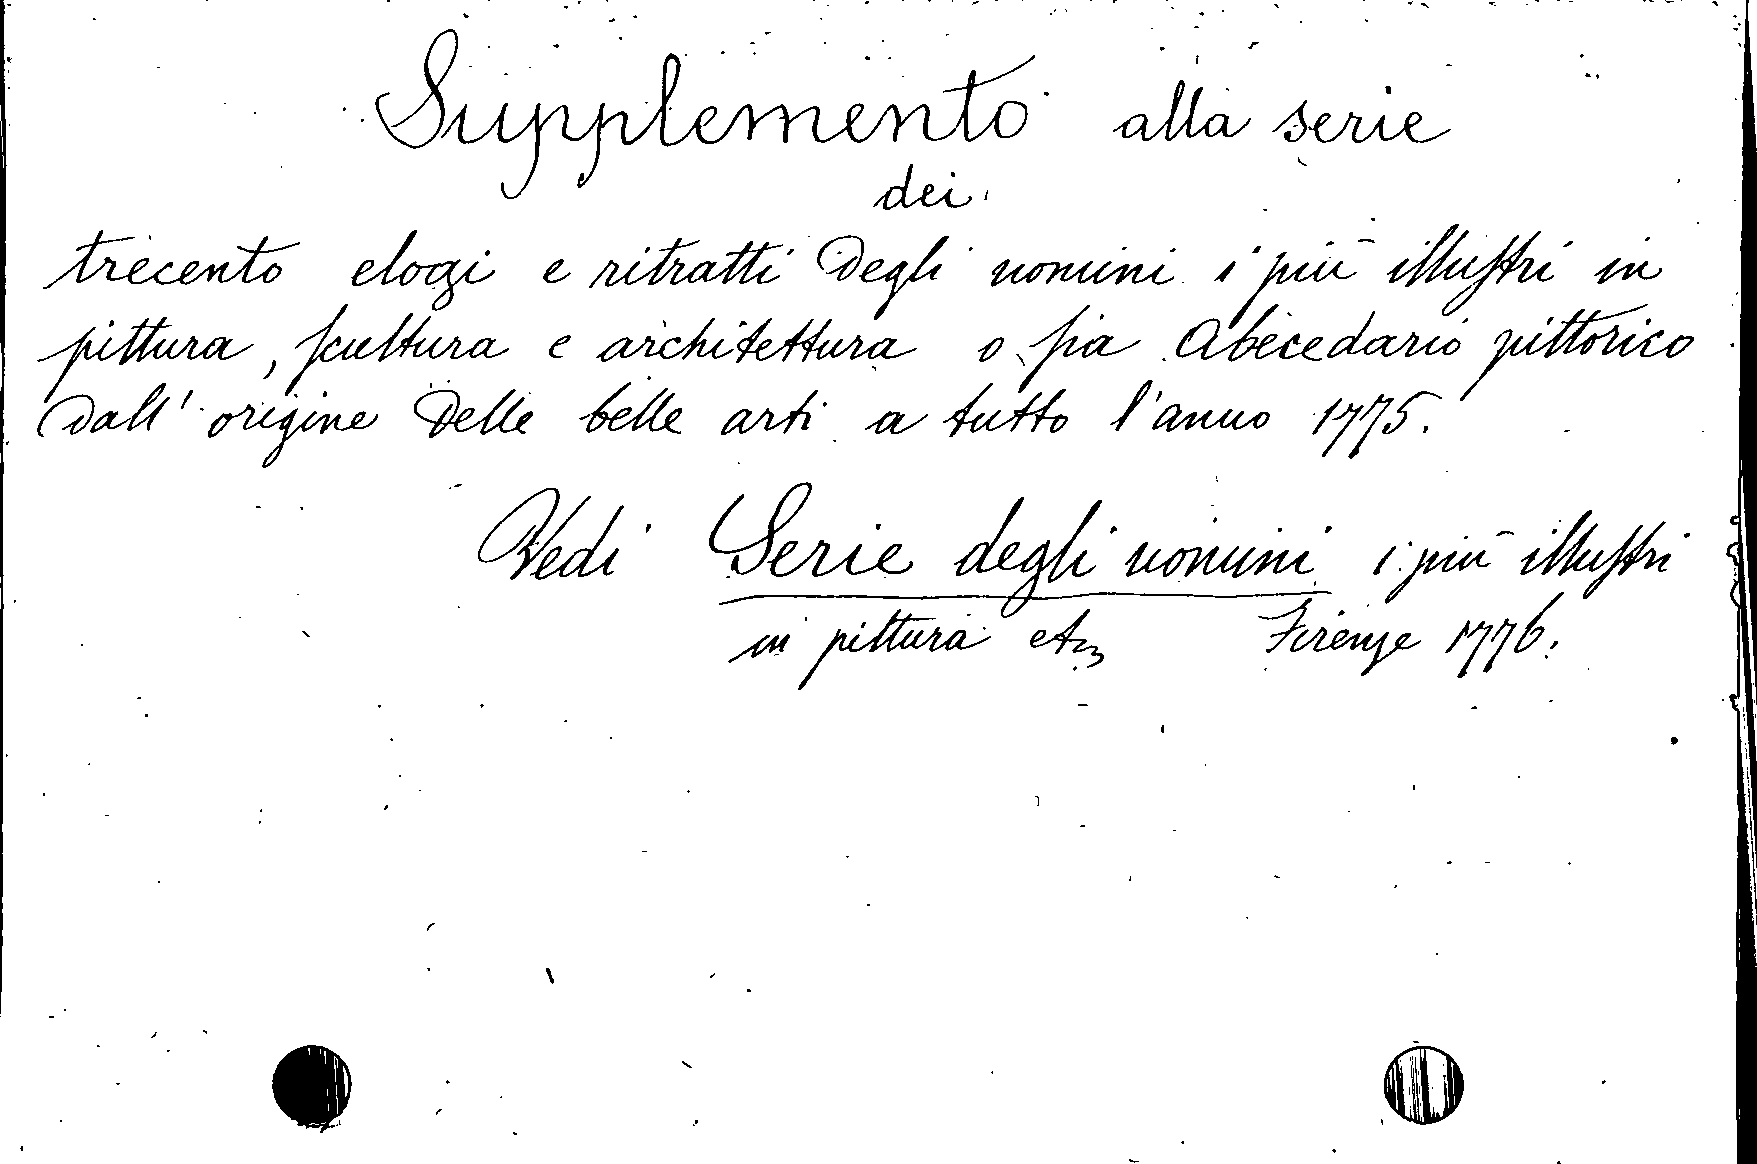 Supplemento alla serie
dei
trecento elogi e ritratti degli uomini i più illuſtri in
pittura, ſcultura e architettura o ſia Abecedario pittorico
dall' origine delle belle arti a tutto l'anno 1775.
Vedi Serie degli uomini i più illuſtri
in pittura etc Firenze 1776.